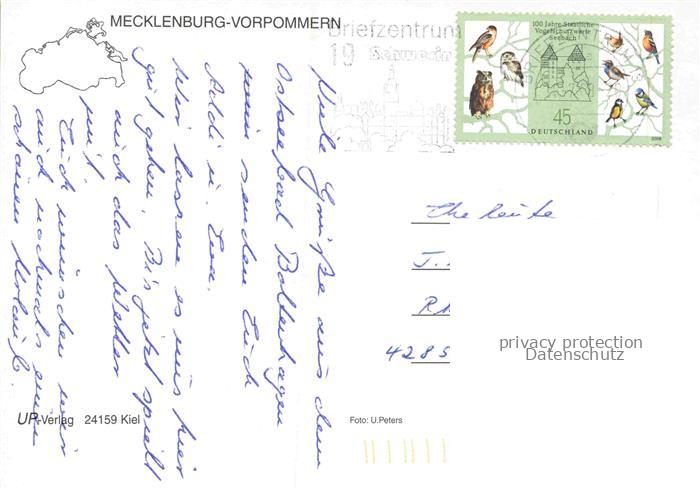 MECKLENBURG-VORPOMMERN
Briefzentrum
19 Schwerin
100 Jahre Staatliche
Vogelschutzwarte
Seebach
45
DEUTSCHLAND
2008
Viele Grüße aus dem
Ostseebad Boltenhagen
senden Euch
Addi u. Eva.
Wir lassen es uns hier
gut gehen. Bis jetzt spielt
auch das Wetter
mit.
Euch wünschen wir
auch nochmals einen
schönen Urlaub.
Eheleute
J.
R
4285
privacy protection
Datenschutz
UP-Verlag 24159 Kiel
Foto: U.Peters